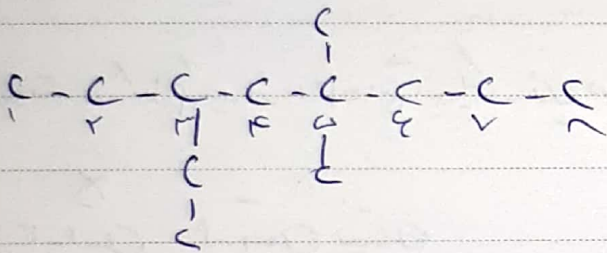 C
C - C - C - C - C - C - C - C
۱ ۲ ۳ ۴ ۵ ۶ ۷ ۸
C C
C